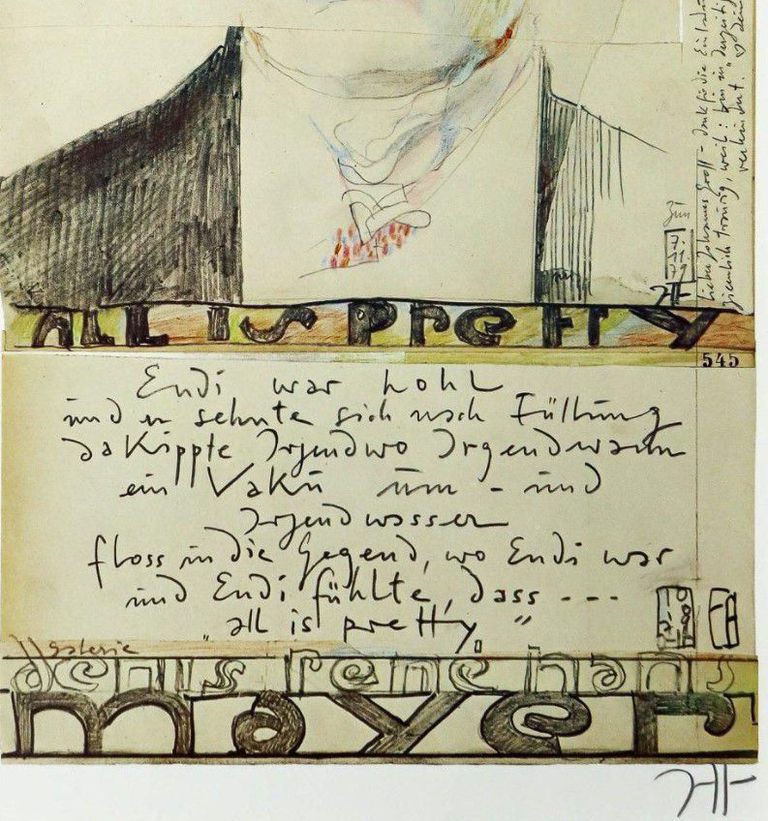 Lieber Johannes Gross - dank für die
ziemlich traurig, weil: bin in derzeitig
verkindert.
Jun
7.
11
71
ALL IS PreTTY
545
Endi war hohl
und er sehnte sich nach Füllung
da kippte Irgendwo Irgendwann
ein Vakü üm - und
Irgendwasser
floss in die Gegend, wo Endi war
und Endi fühlte, dass ---
"all is pretty"
galerie
denis rene hans
mayer